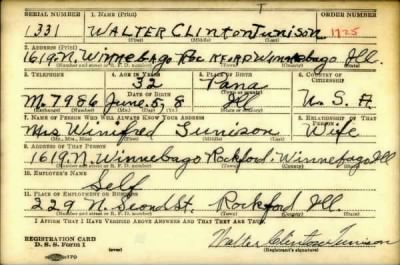 SERIAL NUMBER 1. NAME (Print)
1331 WALTER CLINTON Tunison 1725
(First) (Middle) (Last)
2. ADDRESS (Print)
1619 N. WINNEBAGO WINNEBAGO Ill.
(Number and street or R. F. D. number) (Town) (County) (State)
3. TELEPHONE 4. AGE IN YEARS 5. PLACE OF BIRTH 6. COUNTRY OF CITIZENSHIP
32 Pana
DATE OF BIRTH
M. 7986 June. 5, 8 Ill U. S. A.
7. NAME OF PERSON WHO WILL ALWAYS KNOW YOUR ADDRESS 8. RELATIONSHIP OF THAT PERSON
Mrs Winifred Tunison Wife
9. ADDRESS OF THAT PERSON
1619 N. Winnebago Rockford: Winnebago Ill
10. EMPLOYER'S NAME
Self
11. PLACE OF EMPLOYMENT OR BUSINESS
229 N. Second St. Rockford Ill.
(Number and street or R. F. D. number) (Town) (County) (State)
I AFFIRM THAT I HAVE VERIFIED ABOVE ANSWERS AND THAT THEY ARE TRUE.
REGISTRATION CARD
D. S. S. Form 1
Walter Clinton Tunison
(Registrant's signature)